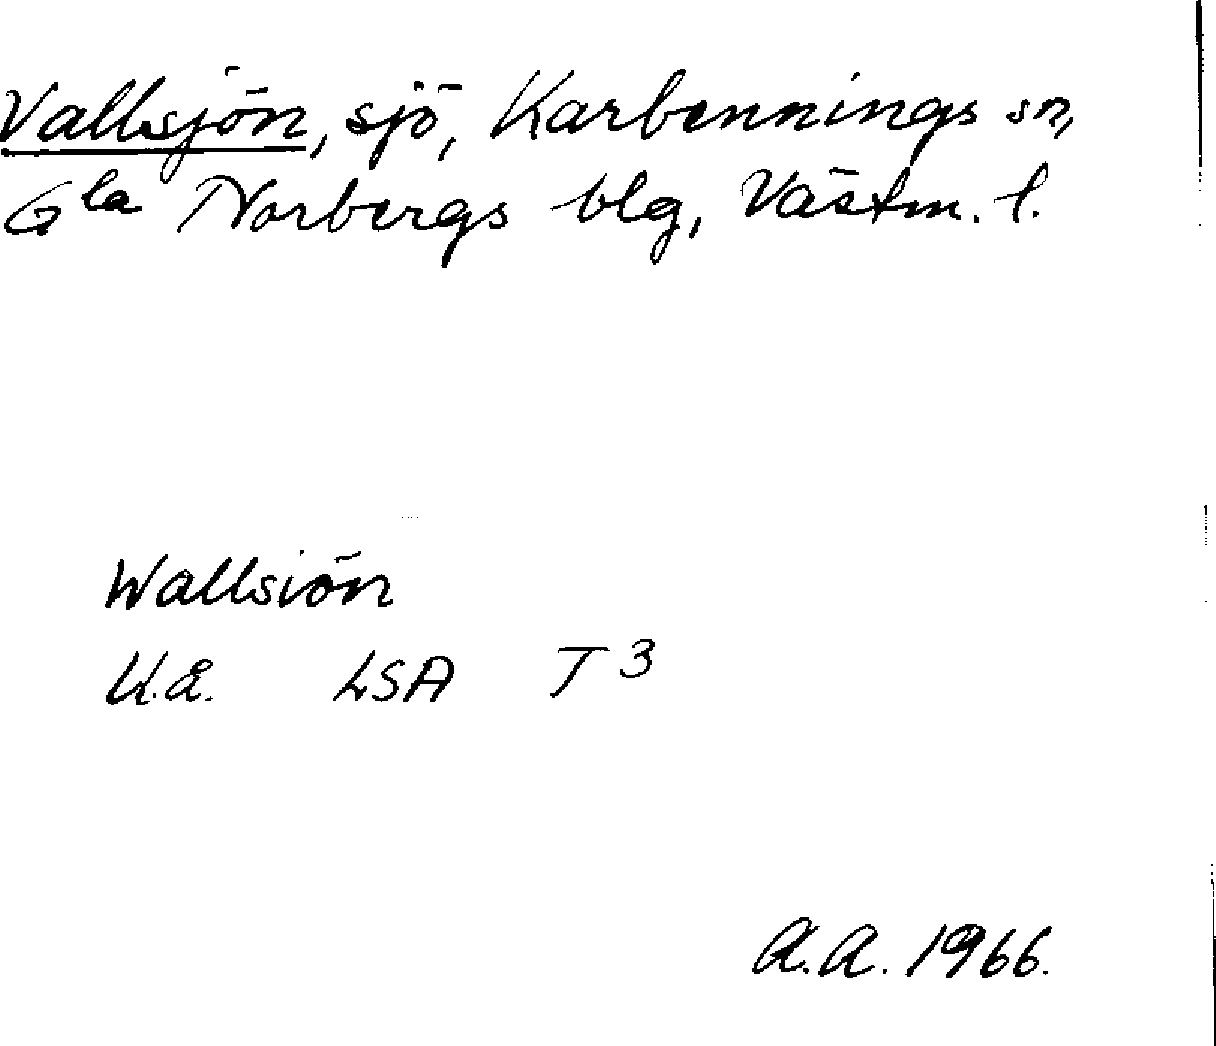 Vallsjön, sjö, Karbennings sn,
Gla Norbergs blg, Västm. l.
Wallsiön
U.å. LSA T 3
A.A. 1966.